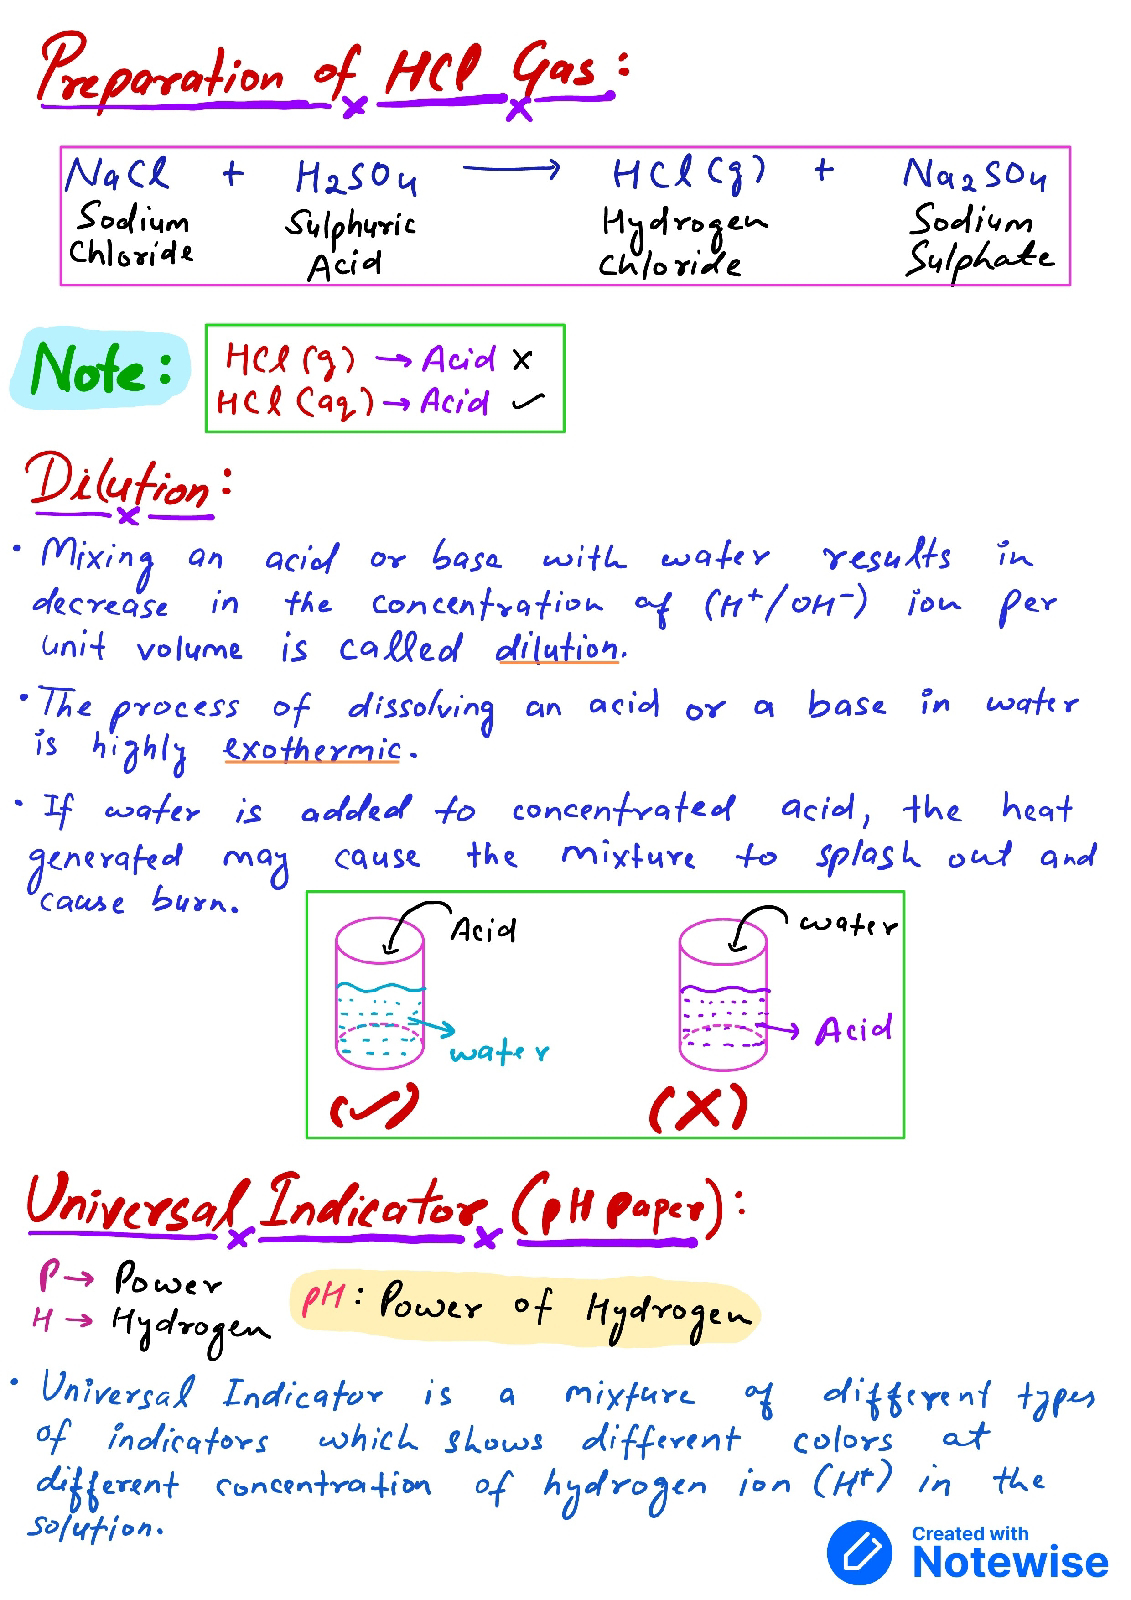 Preparation of HCl Gas:
NaCl + H2SO4 ⟶ HCl(g) + Na2SO4
Sodium Chloride Sulphuric Acid Hydrogen Chloride Sodium Sulphate
Note:
HCl(g) → Acid ×
HCl(aq) → Acid ✓
Dilution:
• Mixing an acid or base with water results in
decrease in the concentration of (H⁺/OH⁻) ion per
unit volume is called dilution.
• The process of dissolving an acid or a base in water
is highly exothermic.
• If water is added to concentrated acid, the heat
generated may cause the mixture to splash out and
cause burn.
Acid
water
(✓)
water
Acid
(×)
Universal Indicator (pH paper):
P → Power
H → Hydrogen
pH: Power of Hydrogen
• Universal Indicator is a mixture of different types
of indicators which shows different colors at
different concentration of hydrogen ion (H⁺) in the
solution.
Created with
Notewise